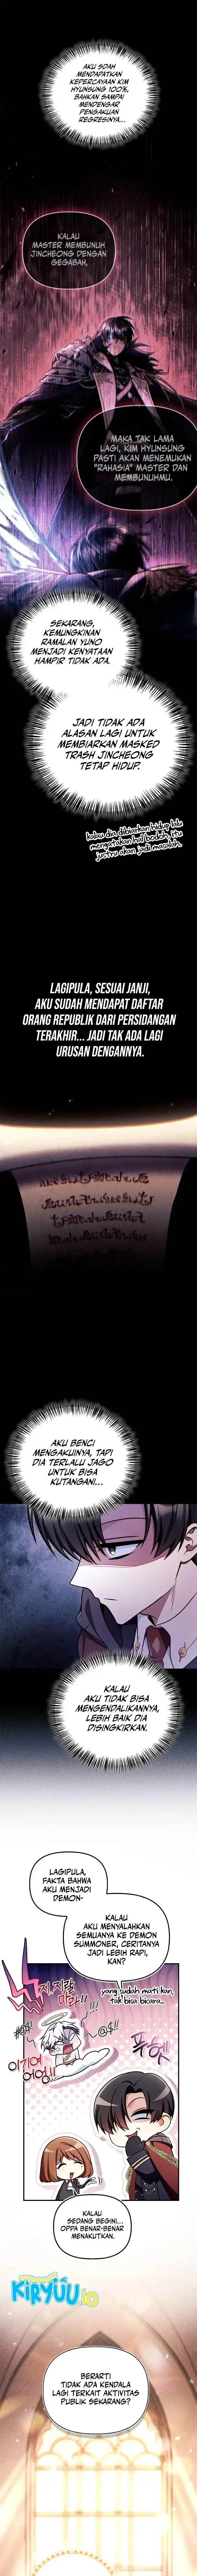 AKU SDAH
MENDAPATKAN
KEPERCAYAAN KIM
HYUNSUNG 100%,
BAHKAN SAMPAI
MENDENGAR
PENGAKUAN
REGRESINYA...
KALAU
MASTER MEMBUNUH
JINCHEONG DENGAN
GEGABAH,
MAKA TAK LAMA
LAGI, KIM HYUNSUNG
PASTI AKAN MENEMUKAN
"RAHASIA" MASTER DAN
MEMBUNUHMU.
SEKARANG,
KEMUNGKINAN
RAMALAN YUNO
MENJADI KENYATAAN
HAMPIR TIDAK ADA.
JADI TIDAK ADA
ALASAN LAGI UNTUK
MEMBIARKAN MASKED
TRASH JINCHEONG
TETAP HIDUP.
kalau dia dibiarkan hidup lalu
mengatakan hal bodoh, itu
justru akan jadi masalah.
LAGIPULA, SESUAI JANJI,
AKU SUDAH MENDAPAT DAFTAR
ORANG REPUBLIK DARI PERSIDANGAN
TERAKHIR... JADI TAK ADA LAGI
URUSAN DENGANNYA.
AKU BENCI
MENGAKUINYA, TAPI
DIA TERLALU JAGO
UNTUK BISA
KUTANGANI...
KALAU
AKU TIDAK BISA
MENGENDALIKANNYA,
LEBIH BAIK DIA
DISINGKIRKAN.
LAGIPULA,
FAKTA BAHWA
AKU MENJADI
DEMON-
KALAU
AKU MENYALAHKAN
SEMUANYA KE DEMON
SUMMONER, CERITANYA
JADI LEBIH RAPI,
KAN?
yang sudah mati kan,
tak bisa bicara...
@$!!
KALAU
SEDANG BEGINI...
OPPA BENAR-BENAR
MENAKUTKAN.
KIRYUU.io
BERARTI
TIDAK ADA KENDALA
LAGI TERKAIT AKTIVITAS
PUBLIK SEKARANG?